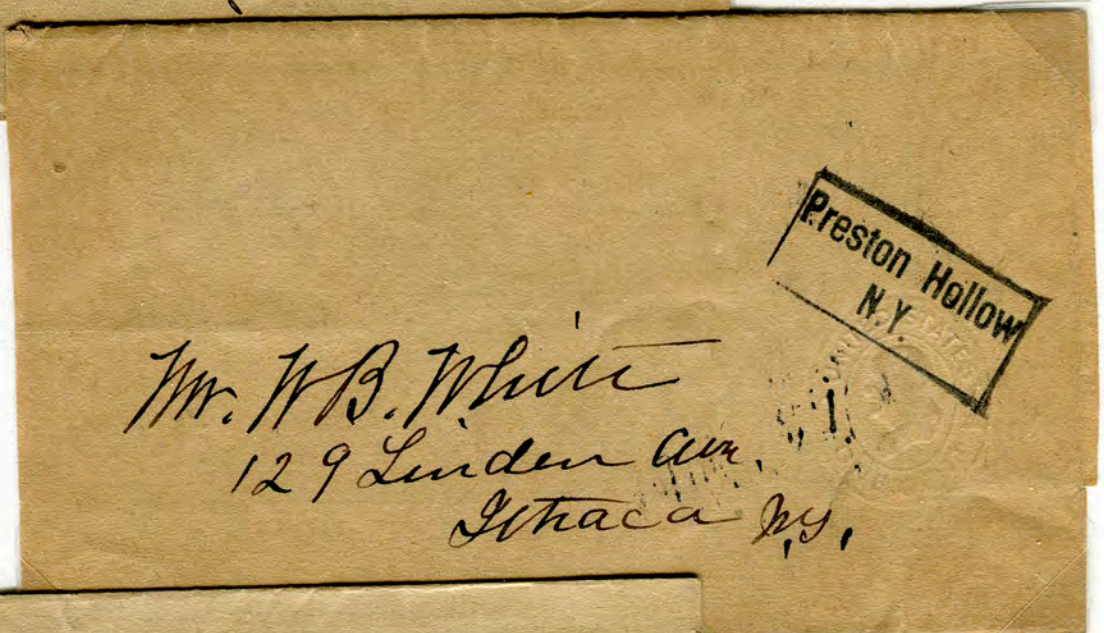 Preston Hollow
N.Y.
STATES
Mr. W B. White
129 Linden Ave,
Ithaca N.Y.